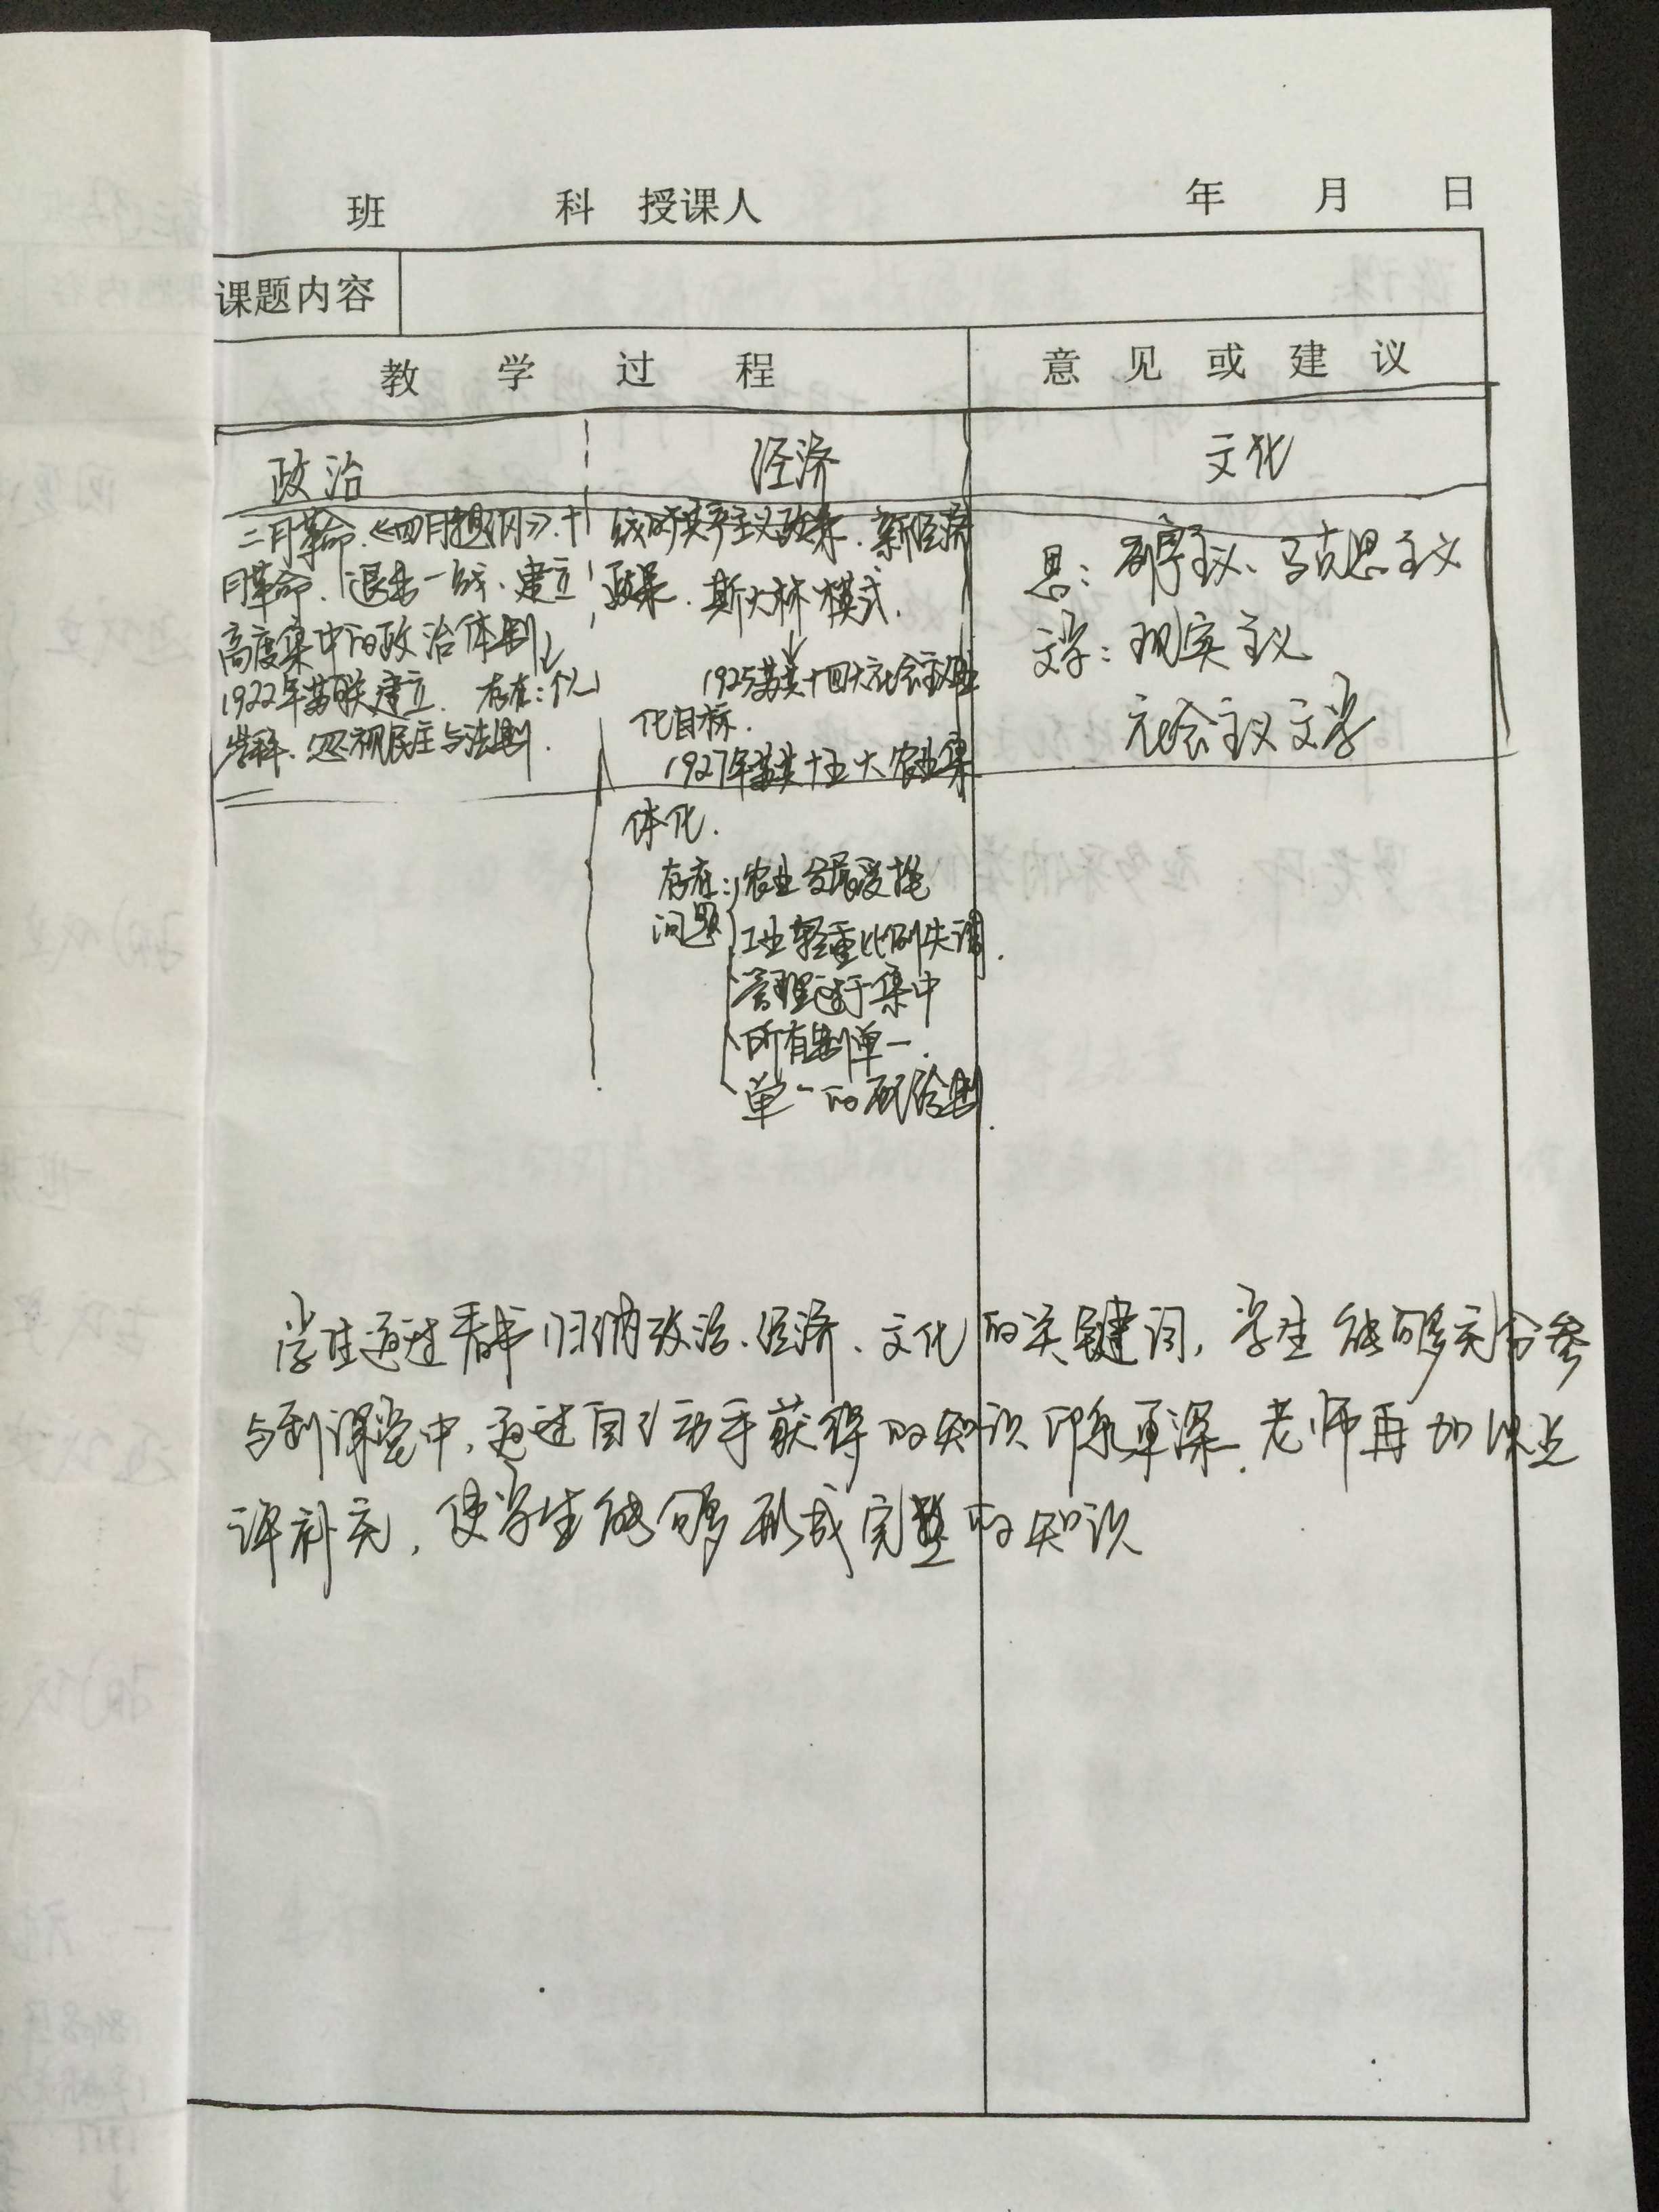 班 科 授课人 年 月 日
课题内容
教 学 过 程
意 见 或 建 议
政治
二月革命、《四月提纲》、十
月革命、退出一战、建立
高度集中的政治体制
1922年苏联建立. 存在:个人
崇拜、忽视民主与法制.
经济
战时共产主义政策、新经济
政策、斯大林模式.
1925苏共十四大社会主义工业
化目标.
1927年苏共十五大农业集
体化.
存在: 农业发展受挫
问题 工业轻重比例失调.
管理过于集中
所有制单一.
单一的配给制.
文化
思: 列宁主义、马克思主义
文学: 现实主义
社会主义文学
学生通过看书归纳政治、经济、文化的关键词, 学生能够充分参
与到课堂中, 通过自己动手获得的知识印象更深. 老师再加以点
评补充, 使学生能够形成完整的知识